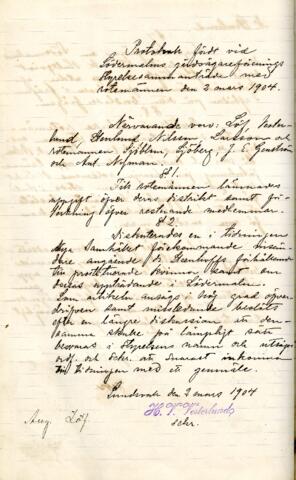 Protokoll fördt vid
Södermalms gårdsägareförenings
styrelsesammanträde med
rotemännen den 2 mars 1904.
Närvarande voro: Löf, Vester-
lund, Henlund, Nilsson, Larsson och
rotemännen Sjöblom, Sjöberg, J. E. Genström
och Ant. Nyman.
§ 1.
Till rotemännen lämnades
uppgift öfver deras distrikt samt för-
teckning öfver resterande medlemmar.
§ 2.
Diskuterades en i tidningen
Nya Samhället förekommande insän-
dare angående förhållande
till prostituerade kvinnor samt om
deras uppträdande i Södermalm.
Som artikeln ansågs i hög grad öfver-
drifven samt missledande beslöts
efter en längre diskussion att den-
samma skulle på lämpligt sätt
besvaras i styrelsens namn och
ordf. och sekr. att snarast inkomma
till tidningen med ett genmäle.
Sundsvall den 2 mars 1904
H. V. Vesterlund
sekr.
Aug. Löf